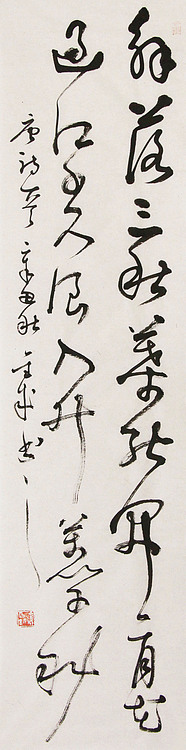 解落三秋葉能開二月花
過江千尺浪入竹萬竿斜
唐詩一首 辛丑秋 書